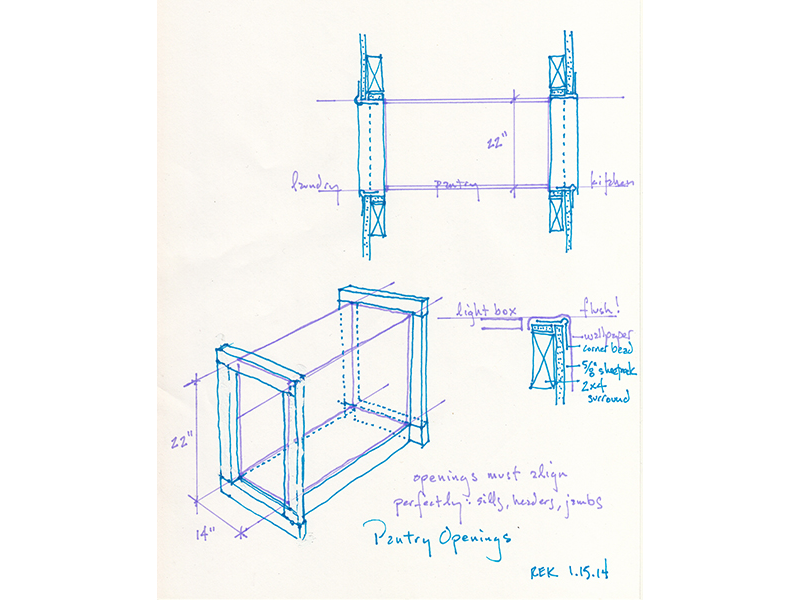 22"
laundry pantry kitchen
light box flush!
wallpaper
corner bead
5/8 sheetrock
2x4
surround
22"
14"
openings must align
perfectly: sills, headers, jambs
Pantry Openings
REK 1.15.14